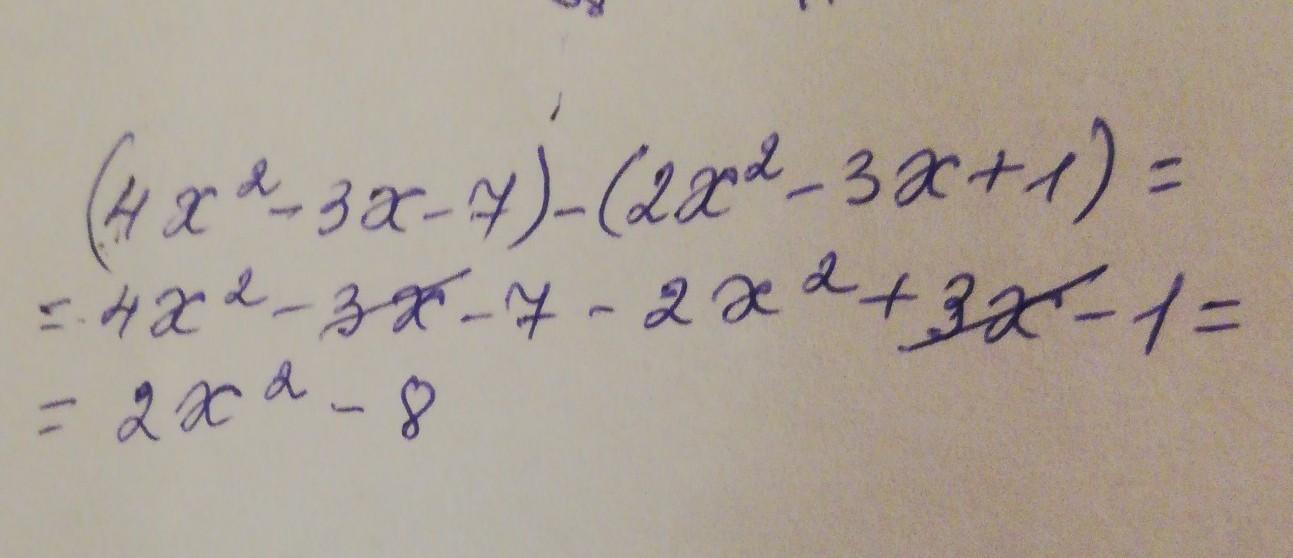 (4x² - 3x - 7) - (2x² - 3x + 1) =
= 4x² - 3x - 7 - 2x² + 3x - 1 =
= 2x² - 8